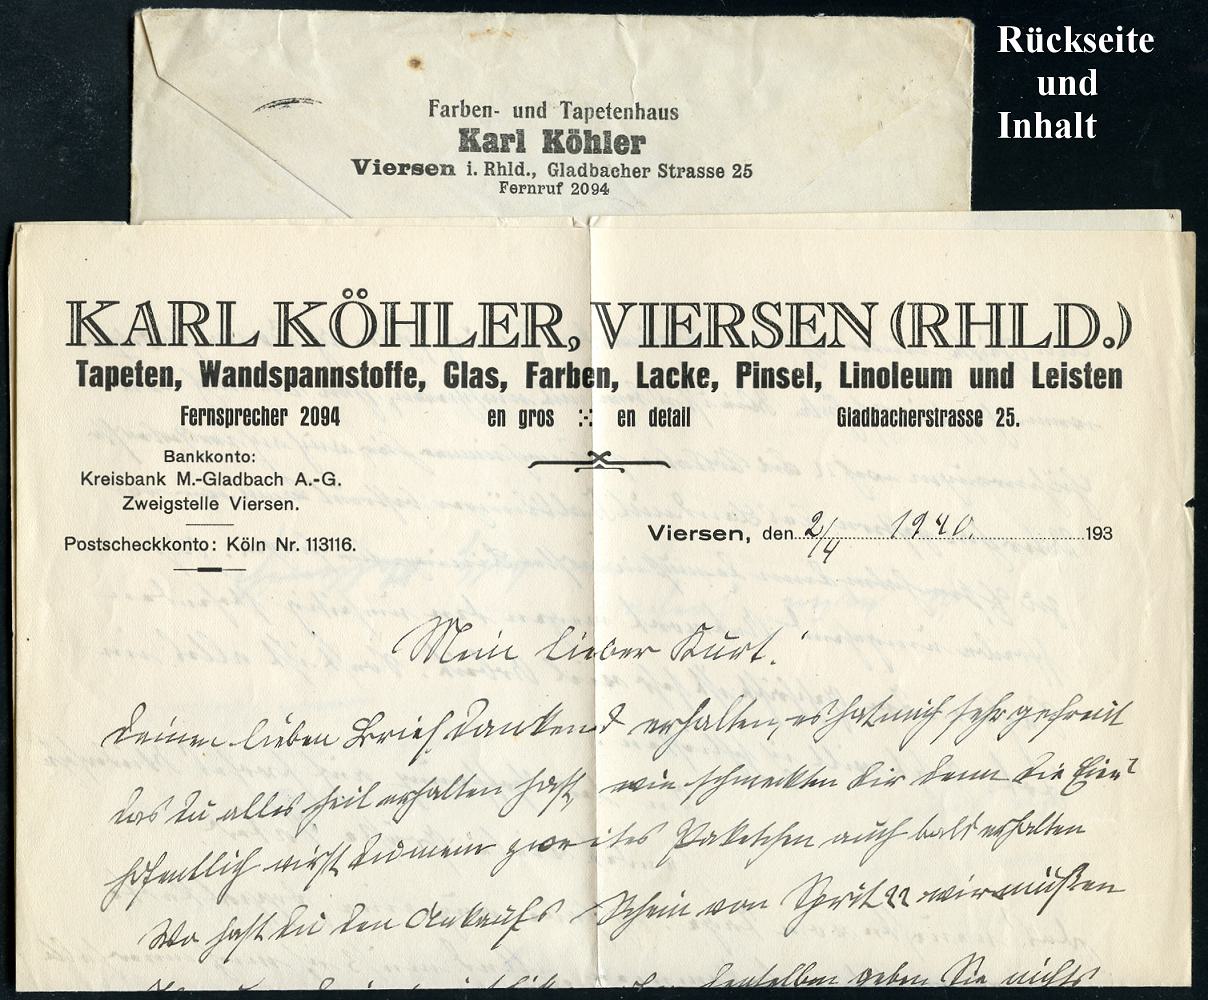 Rückseite
und
Inhalt
Farben- und Tapetenhaus
Karl Köhler
Viersen i. Rhld., Gladbacher Strasse 25
Fernruf 2094
KARL KÖHLER, VIERSEN (RHLD.)
Tapeten, Wandspannstoffe, Glas, Farben, Lacke, Pinsel, Linoleum und Leisten
Fernsprecher 2094 en gros :-: en detail Gladbacherstrasse 25.
Bankkonto:
Kreisbank M.-Gladbach A.-G.
Zweigstelle Viersen.
Postscheckkonto: Köln Nr. 113116.
Viersen, den 2/4 1940. 193
Mein lieber Kurt!
Deinen lieben Brief dankend erhalten, es hat mich sehr gefreut
das du alles heil erhalten hast, wie schmeckten dir denn die Eier?
hoffentlich wirst du mein zweites Paketchen auch bald erhalten
Wo hast du den Ankaufs Schein von Sprit?? wir müßen
denselben geben Sie nichts